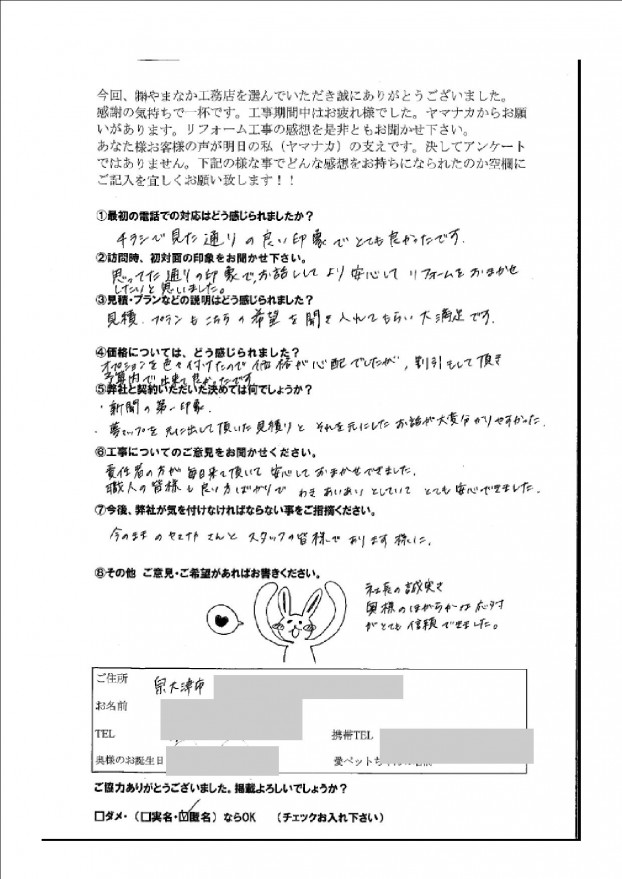 今回、㈱やまなか工務店を選んでいただき誠にありがとうございました。
感謝の気持ちで一杯です。工事期間中はお疲れ様でした。ヤマナカからお願
いがあります。リフォーム工事の感想を是非ともお聞かせ下さい。
あなた様お客様の声が明日の私（ヤマナカ）の支えです。決してアンケート
ではありません。下記の様な事でどんな感想をお持ちになられたのか空欄に
ご記入を宜しくお願い致します！！
①最初の電話での対応はどう感じられましたか？
チラシで見た通りの良い印象でとても良かったです.
②訪問時、初対面の印象をお聞かせ下さい。
思ってた通りの印象で、お話ししてより安心してリフォームをおまかせ
したいと思いました。
③見積・プランなどの説明はどう感じられました？
見積.プランもこちらの希望を聞き入れてもらい大満足です.
④価格については、どう感じられました？
オプションを色々付けたので価格が心配でしたが,割引もして頂き
予算内で出来て良かったです
⑤弊社と契約いただいた決めては何でしょうか？
・新聞の第一印象.
・夢マップを元に出して頂いた見積りとそれを元にしたお話が大変分かりやすかった.
⑥工事についてのご意見をお聞かせください。
責任者の方が毎日来て頂いて安心しておまかせできました.
職人の皆様も良い方ばかりでわきあいあいとしていてとても安心できました.
⑦今後、弊社が気を付けなければならない事をご指摘ください。
今のままのヤマナカさんとスタッフの皆様であります様に.
⑧その他 ご意見・ご希望があればお書きください。
社長の誠実さ
奥様のほがらかな応対
がとても信頼できました。
ご住所 泉大津市
お名前
TEL 携帯TEL
奥様のお誕生日 愛ペットちゃん
ご協力ありがとうございました。掲載よろしいでしょうか？
□ダメ・（□実名・☑匿名）ならOK （チェックお入れ下さい）